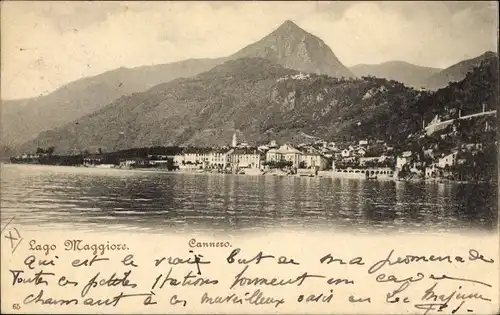 Lago Maggiore. Cannero.
Qui est le vraie But de ma promenade
Toutes ces petites Stations forment un cadre
charmant à ces merveilleux oasis du lac Majeur
65